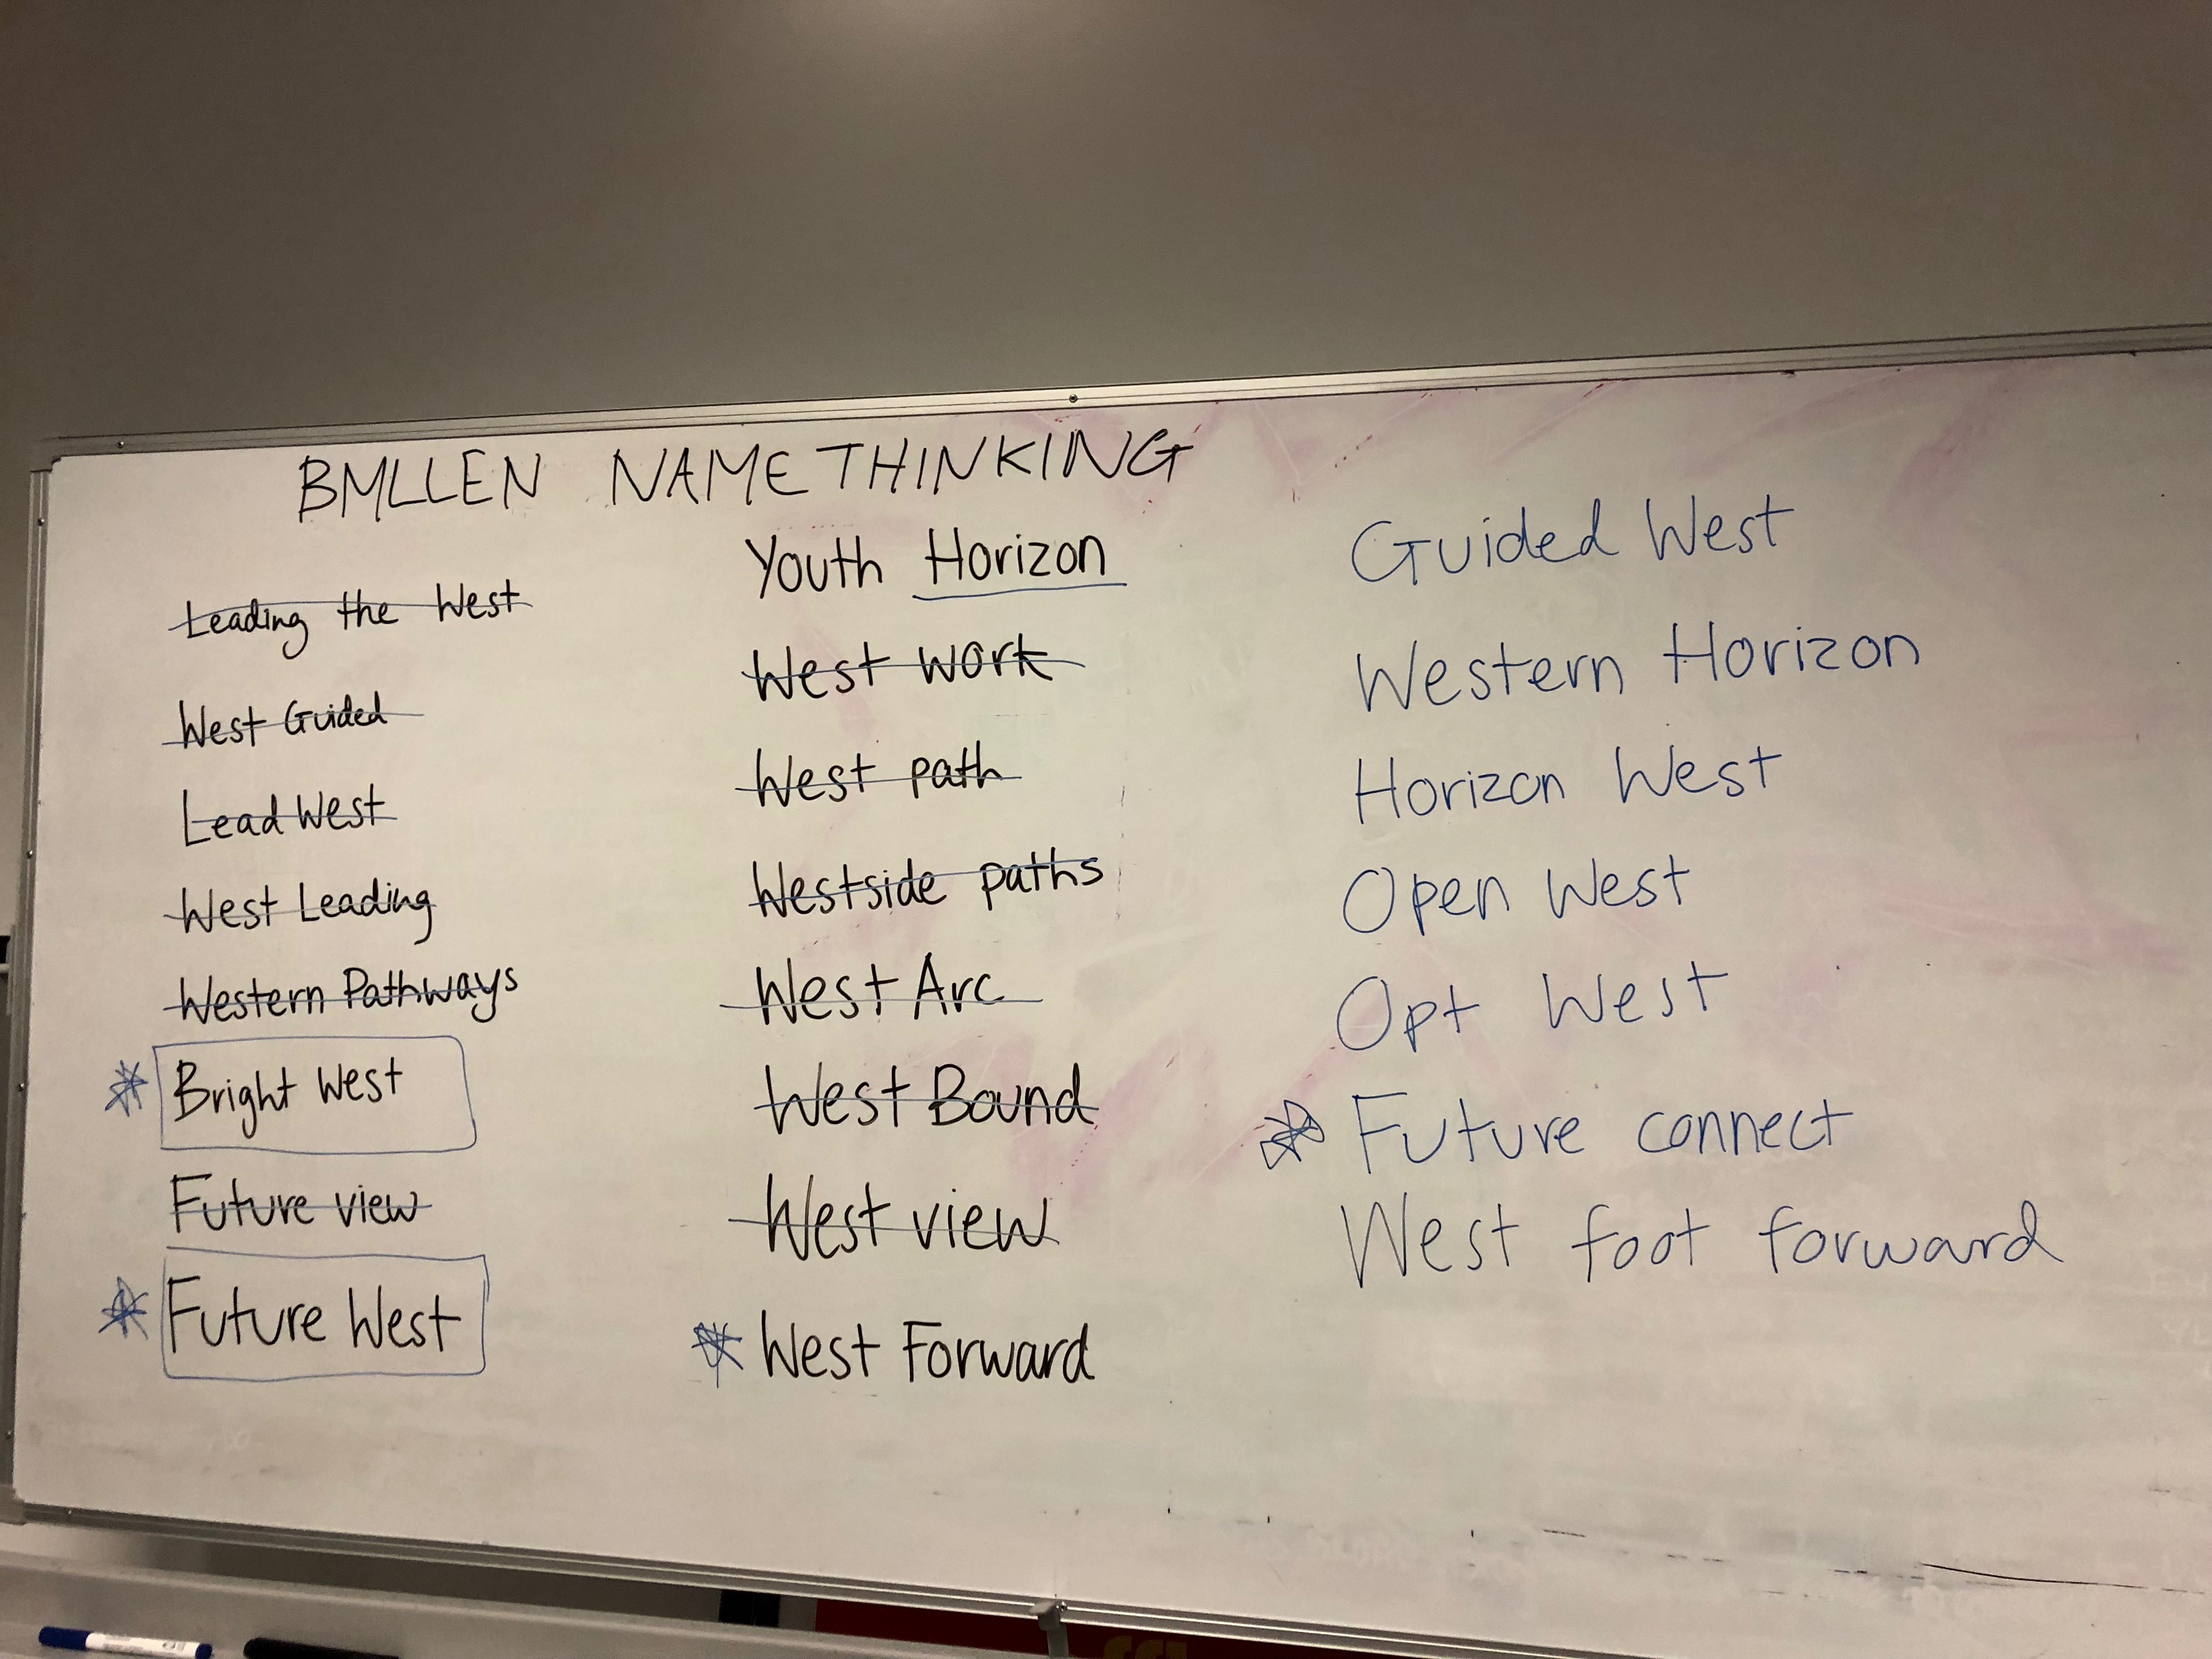 BMLLEN NAME THINKING
Leading the West
West Guided
Lead West
West Leading
Western Pathways
Bright West
Future view
Future West
Youth Horizon
West work
West path
Westside paths
West Arc
West Bound
West view
West Forward
Guided West
Western Horizon
Horizon West
Open West
Opt West
Future connect
West foot forward